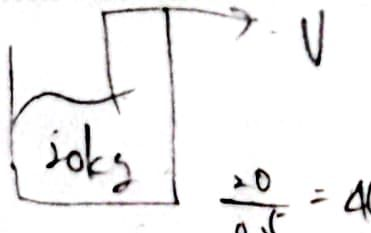 V
20kg
20/0.5 = 40